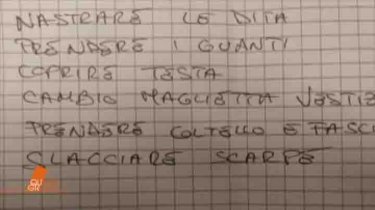 NASTRARE LE DITA
PRENDERE I GUANTI
COPRIRE TESTA
CAMBIO MAGLIETTA VESTI
PRENDERE COLTELLO E FASC
SLACCIARE SCARPE